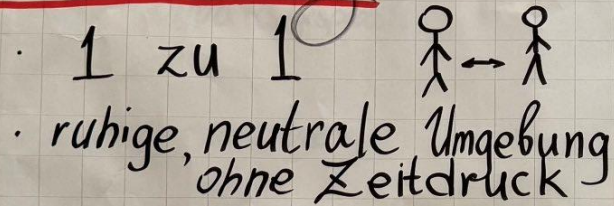 · 1 zu 1
· ruhige, neutrale Umgebung
ohne Zeitdruck